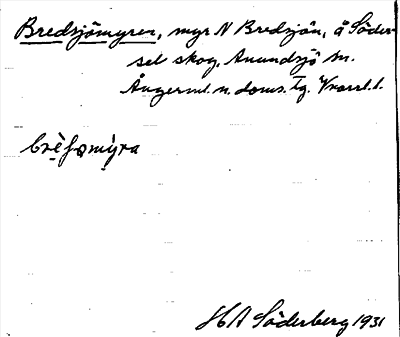 Bredsjömyren, myr N Bredsjön, å Söder-
sel skog, Anundsjö sn.
Ångerml. n. doms. Tg. Vnorrl. l.
HA Söderberg 1931